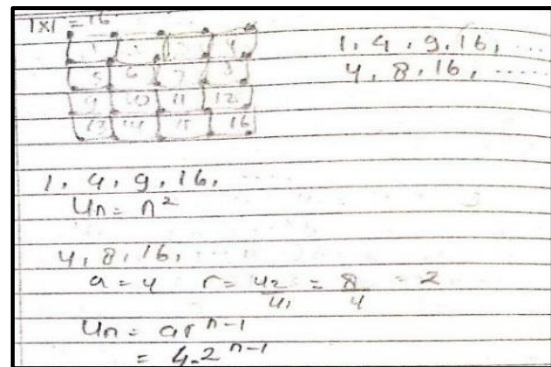 1x1 = 16
1 4
5 6 7 8
9 10 11 12
13 14 15 16
1, 4, 9, 16, ...
4, 8, 16, .....
1, 4, 9, 16,
Un = n²
4, 8, 16, ....
a = 4 r = U₂/U₁ = 8/4 = 2
Un = ar^n-1
= 4.2^n-1